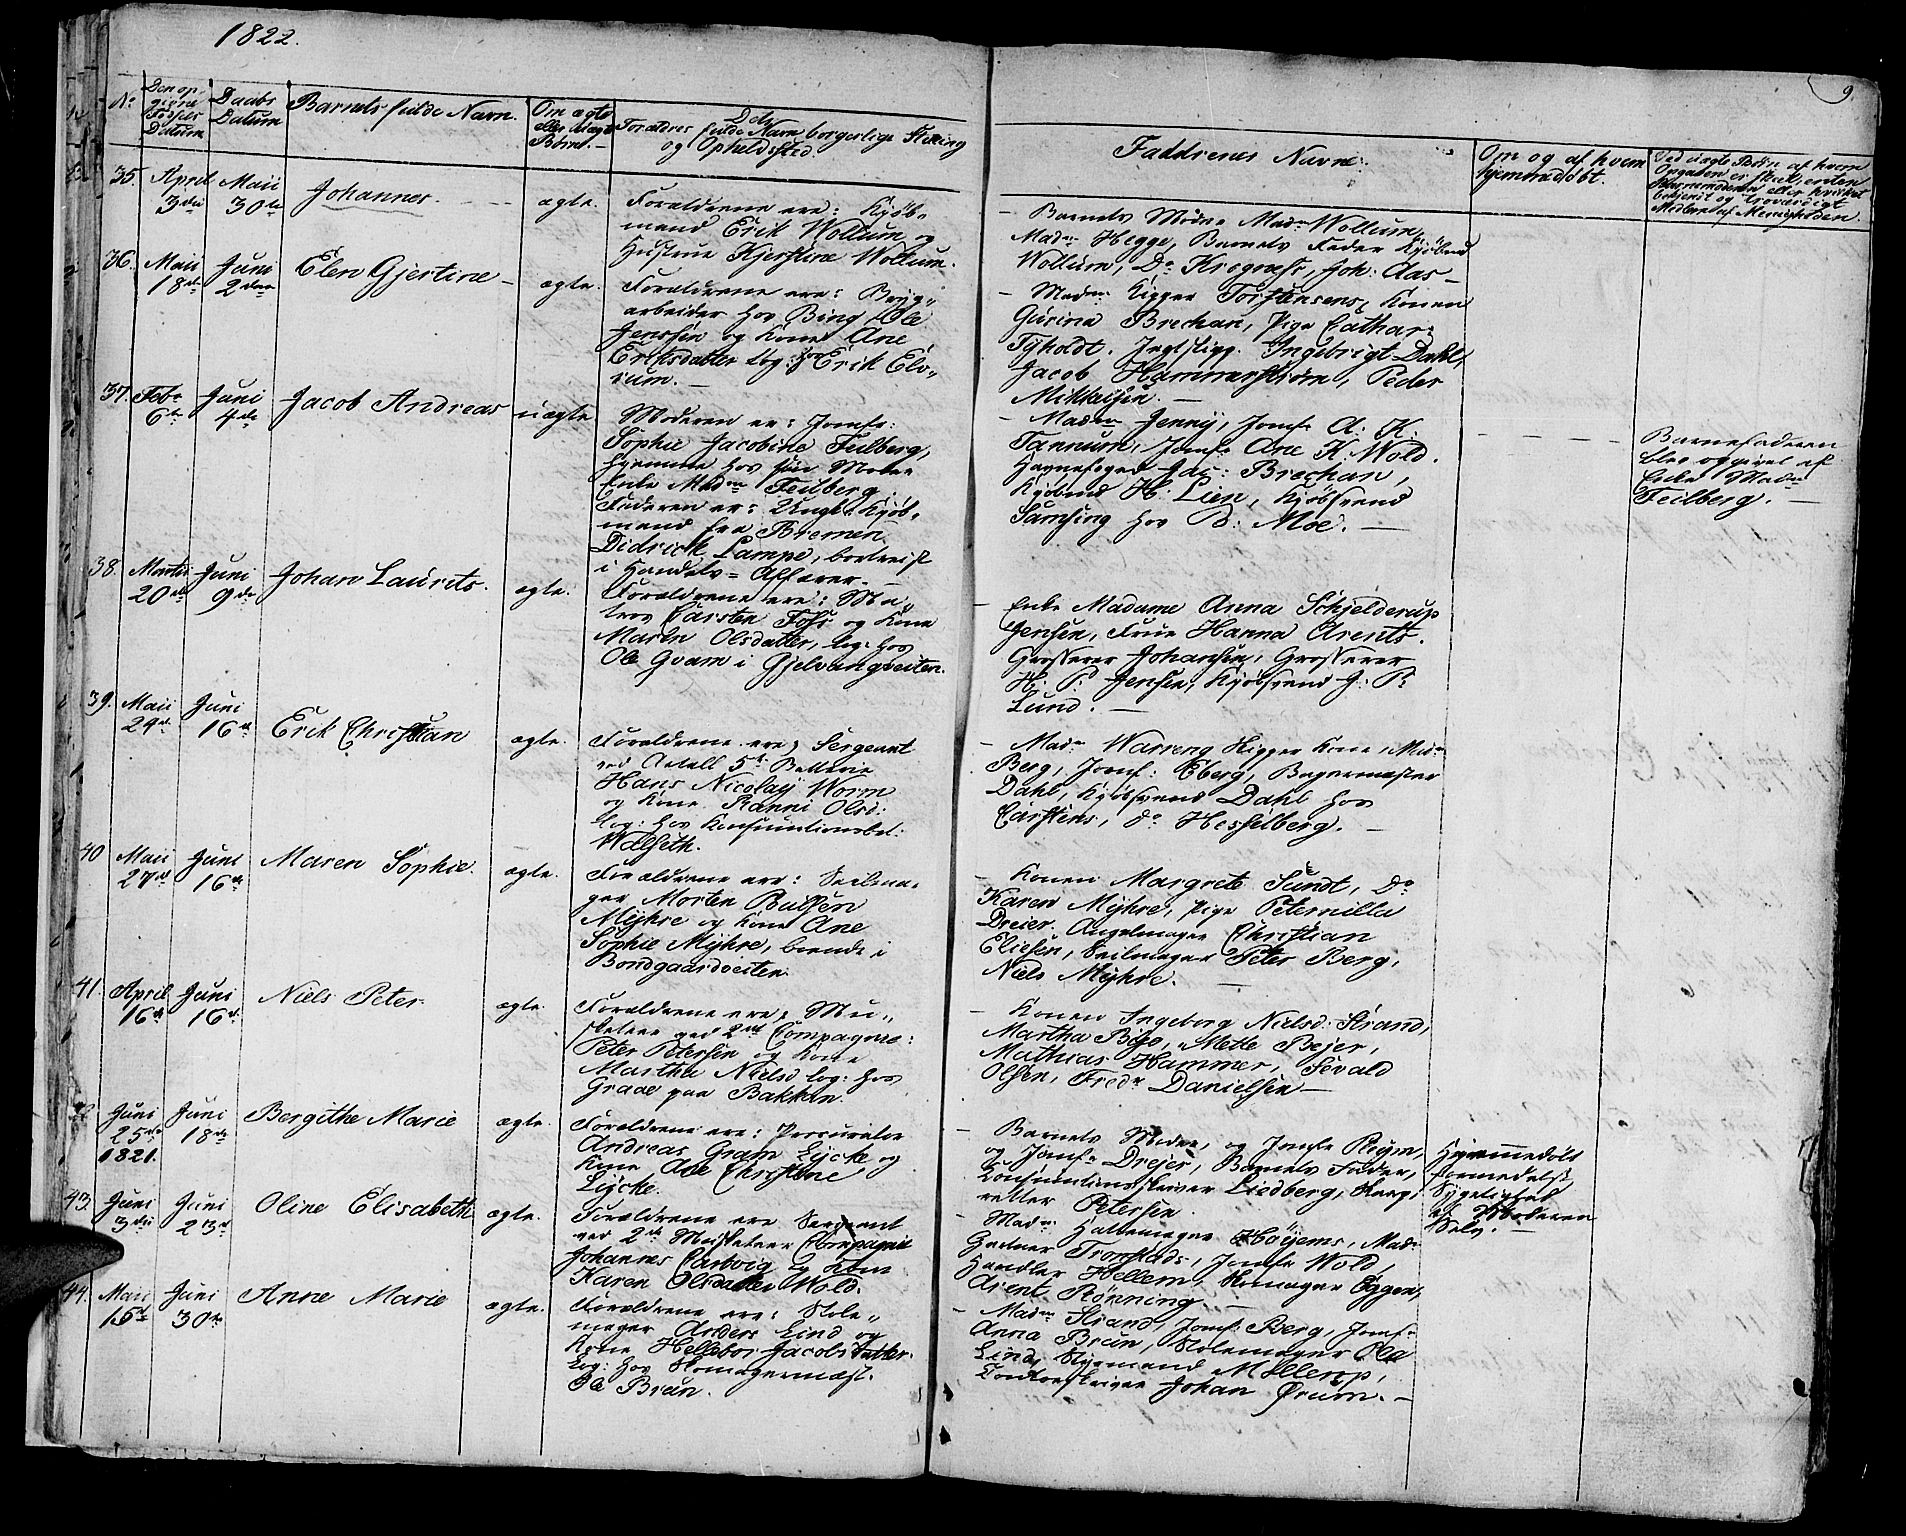 1822.
9.
No
Den op-
givne
Fødsels
Datum
Daabs
Datum
Barnets fulde Navn.
Om ægte
eller uægte
Børn.
Forældres fulde Navn borgerlige Stilling
og Opholdssted.
Faddrenes Navne.
Om og af hvem
hjemmedøbt.
35.
April
3die
Maii
30te
Johannes.
ægte.
Forældrene ere: Kjøb-
mand Erik Wollum og
Hustrue Kjerstine Wollum.
- Barnets Moder Madm Wollum,
Madm Hegge, Barnets Fader Kjøbmd
Wollum, Do Krogness, Joh: Aas -
36.
Maii
18de
Juni
2den
Elen Gjertine -
ægte.
Forældrene ere: Bryg-
arbeider hos Bing Ole
Jenssen og Kone Ane
Eriksdatter log: hos Erik Elv-
rum. -
- Madm Torstensens, Konen
Gurina Brechan, Pige Cathar:
Tyholdt. Ingebrigt Dahl,
Jacob Hammerstrøm, Peder
Mikkelsen. -
37.
Febr
6te
Juni
4de
Jacob Andreas
uægte
Moderen er: Jomfr:
Sophie Jacobine Feilberg,
hjemme hos sin Moder
Enke Madm Feilberg.
Faderen er: Ungk: Kjøb-
mand fra Bremen
Didrich Lampe, bortreist
i Handels-Affairer. -
- Madm Jenny, Jomfr A. K.
Tannum, Jomfr Ane K. Wold.
Havnefoged Jac: Brechan,
Kjøbmd H: Lien, Kjøbsvend
Samsing hos B: Moe. -
Barnefaderen
blev opgivet af
Enke Madm
Feilberg. -
38.
Martii
20de
Juni
9de
Johan Laurits.
ægte.
Forældrene ere: Ma-
tros Carsten Foss og Kone
Maren Olsdatter, log: hos
Ole Gram i Gjelvangveiten.
- Enke Madame Anna Schjelderup
Jensen, Frue Hanna Arents.
Grosserer Johansen, Grosserer
H. P: Jensen, Kjøbsvend J: P:
Lund. -
39.
Maii
29de
Juni
16de
Erik Christian
ægte.
Forældrene ere: Sergeant
ved 5te Batterie
Hans Nicolay Worm
og Kone Ranni Olsd:
log: hos Konsumtionsbet:
Walseth.
- Madm Warreng Kone, Madm
Berg, Jomf: Eberg, Bagermester
Dahl, Kjøbsvend Dahl hos
Carstens, do Hesselberg. -
40
Maii
27de
Juni
16de
Maren Sophie.
ægte.
Forældrene ere: Seilma-
ger Morten Bulsen
Myhre og Kone Ane
Sophie Myhre, boende i
Bondgaardveiten.
- Konen Margrete Sundt, Do
Karen Myhre, Pige Peternilla
Dreier. Angelmager Christian
Eliesen, Seilmager Peter Berg,
Niels Myhre. -
41.
April
16de
Juni
16de
Niels Peter.
ægte.
Forældrene ere: Mu-
sketeer ved 2det Compagnie:
Peter Petersen og Kone
Martha Nielsd log: hos
Graae paa Bakken.
- Konen Ingeborg Nielsd: Strand,
Martha Bye, Mette Bejer,
Mathias Hammer, Sevald
Olsen, Fredr Danielsen -
42
Juni
25de
1821.
Juni
18de
Bergithe Marie
ægte.
Forældrene ere: Procurator
Andreas Gram Lycke og
Kone Ane Christine
Lycke.
- Barnets Moder, og Jomfr Riym,
og Jomfr Drejer, Barnets Fader,
Konsumtionsskriver Liedberg,
Petersen.
Hjemmedøbt
formedelst
Sygelighed
af Moderen
Selv. -
43.
Juni
3die
Juni
23de
Oline Elisabeth
ægte.
Forældrene ere Sergeant
ved 2de Musketeer Compagnie
Johannes Cartvig og Kone
Karen Olsdatter Wold.
- Madm Hattemager Höyems, Madm
Gartner Tronstads, Jomfr Wold,
Handler Hellem, Skomager Eggen,
Arent Rønning -
44.
Maii
15de
Juni
30te
Anne Marie
ægte.
Forældrene ere: Stole-
mager Anders Lind og
Kone Hellebor Jacobsdatter.
log: hos Skomagermest.
Ole Bruun.
- Madm Strand, Jomf: Berg, Jomfr
Anna Bruun, Stolemager Ole
Lind, Styrmand Møllerop,
Contorskriver Johan Ørum. -